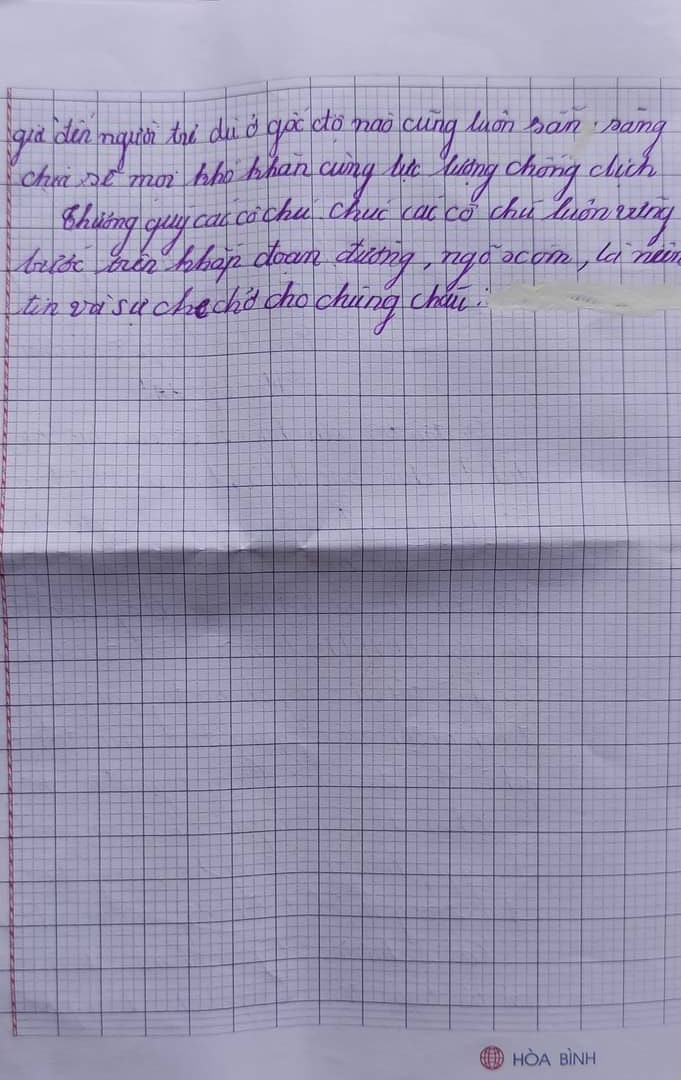 già đến người trẻ dù ở góc độ nào cũng luôn sẵn sàng
chia sẻ mọi khó khăn cùng lực lượng chống dịch
Thương quý các cô chú. Chúc các cô chú luôn vững
bước trên khắp đoạn đường, ngõ xóm, là niềm
tin và sự che chở cho chúng cháu.
HÒA BÌNH